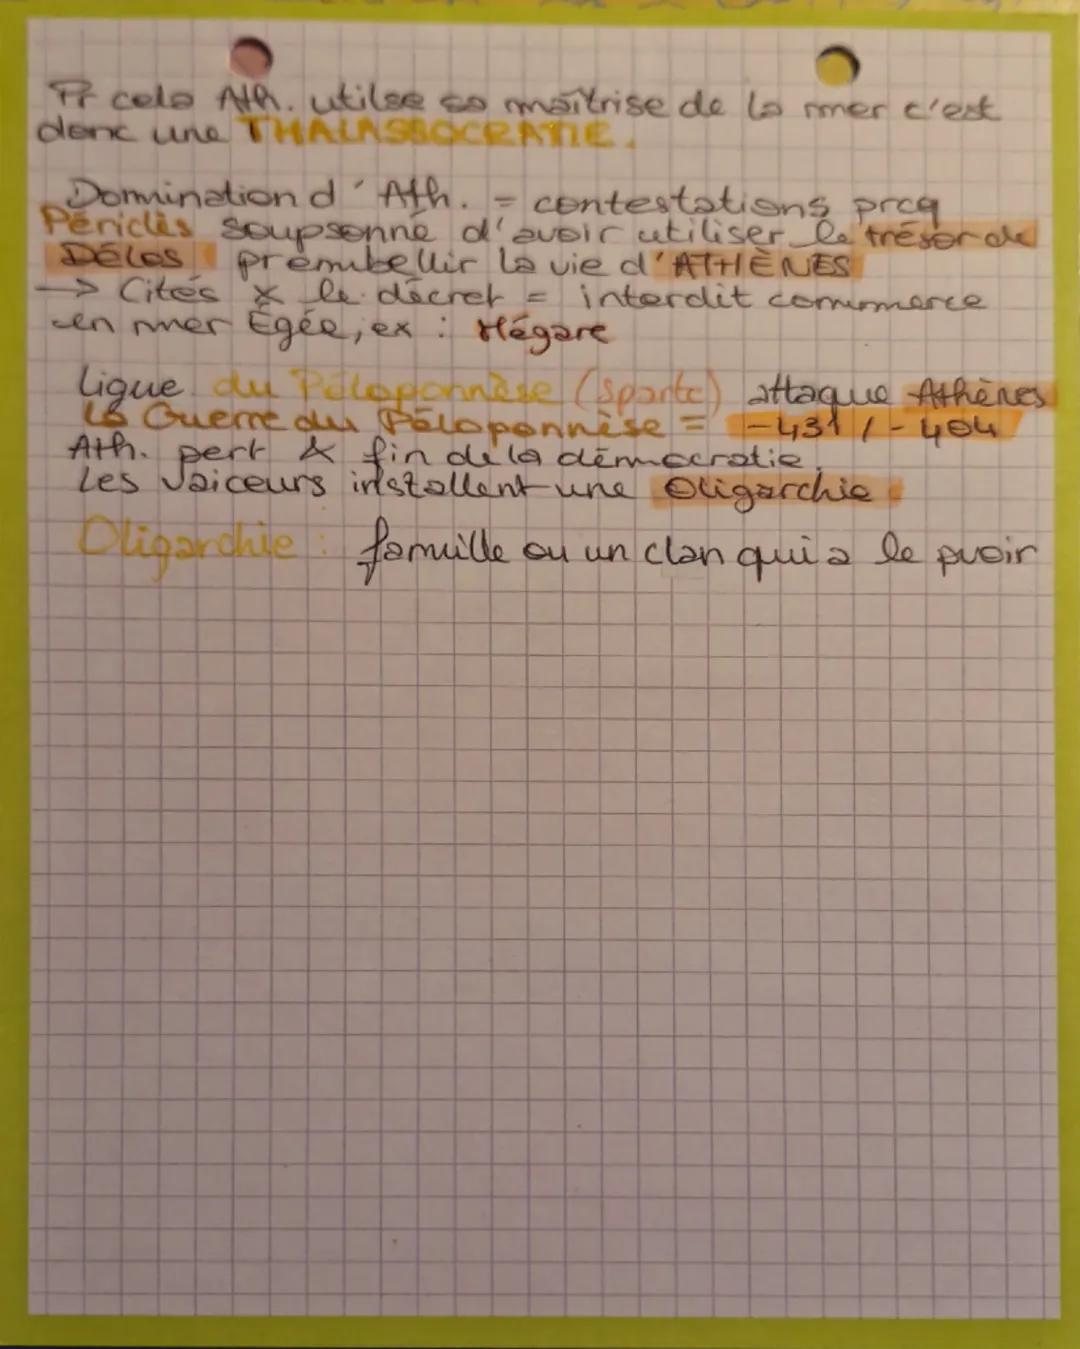 Pr cela Ath. utilse sa maîtrise de la mer c'est
donc une THALASSOCRATIE.
Domination d'Ath. = contestations prcq
Périclès soupsonné d'avoir utiliser le trésor de
Délos pr embellir la vie d'ATHÈNES
→ Cités x le décret = interdit commerce
en mer Egée, ex : Mégare
Ligue du Péloponnèse (Sparte) attaque Athènes
La Guerre du Péloponnèse = -431 / -404
Ath. pert & fin de la démocratie.
Les vaiceurs installent une Oligarchie.
Oligarchie : famille ou un clan qui a le pvoir